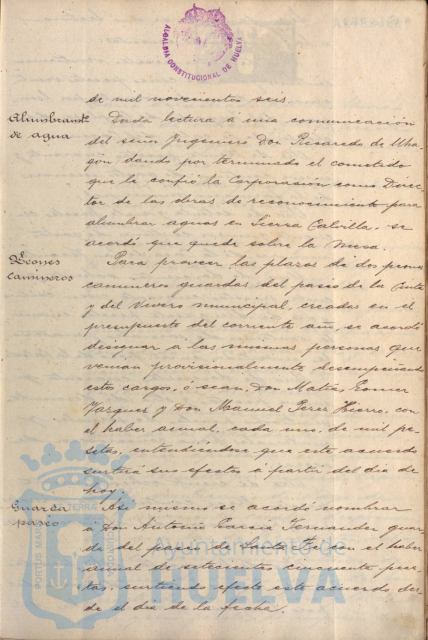 ALCALDIA CONSTITUCIONAL DE HUELVA
de mil novecientos seis.
Alumbramto
de agua
Dada lectura á una comunicación
del señor Ingeniero Don Recaredo de Uha-
gón, dando por terminado el cometido
que le confió la Corporación como Direc-
tor de las obras de reconocimiento para
alumbrar aguas en Sierra Calvilla, se
acordó que quede sobre la mesa.
Peones
camineros
Para proveer las plazas de dos peones
camineros guardas del paseo de la
y del Vivero municipal, creadas en el
presupuesto del corriente año, se acordó
designar á las mismas personas que
venian provisionalmente desempeñando
estos cargos, ó sean, Don Matías Gomez
Vazquez y Don Manuel Perez Hierro, con
el haber anual, cada uno, de mil pe-
setas, entendiéndose que este acuerdo
surtirá sus efectos á partir del dia de
hoy.
Guarda
paseo
Asi mismo se acordó nombrar
á Don Antonio García Fernandez guar-
da del paseo de Santa Fe, con el haber
anual de setecientas cincuenta pese-
tas, surtiendo efecto este acuerdo des-
de el dia de la fecha.
PORTUS MARIS ET TERRAE CUSTODIA
Ayuntamiento de
HUELVA